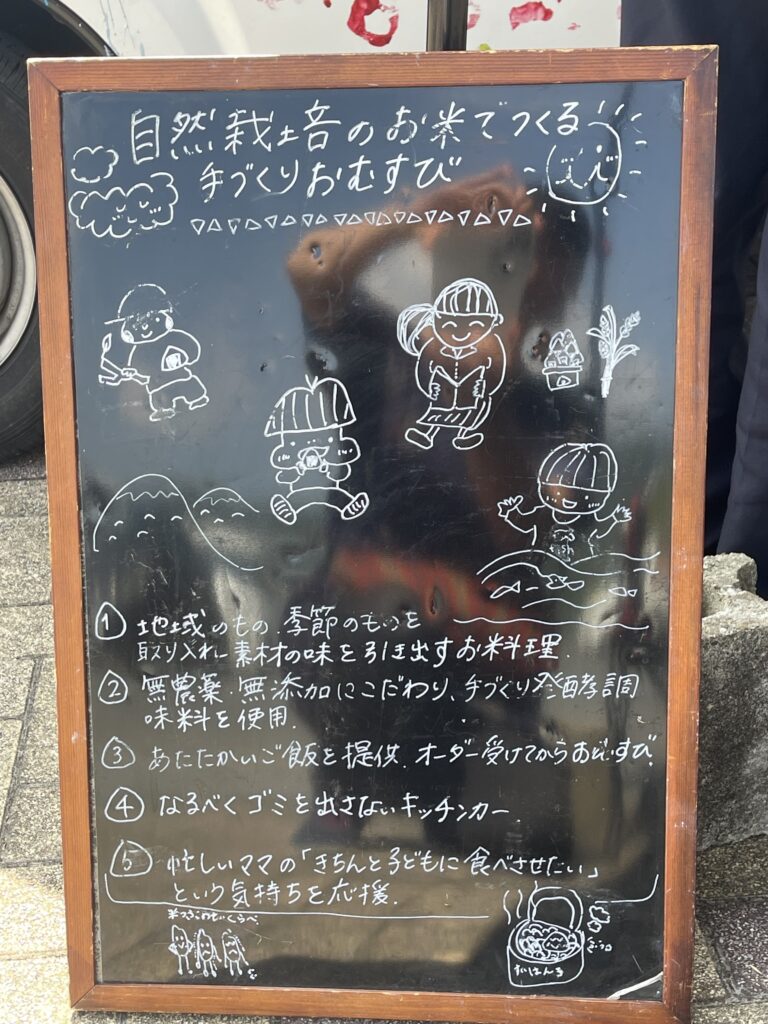 自然栽培のお米でつくる
手づくりおむすび
① 地域のもの.季節のものを
取り入れ素材の味を引き出すお料理.
② 無農薬.無添加にこだわり、手づくり発酵調
味料を使用.
③ あたたかいご飯を提供.オーダー受けてからおむすび.
④ なるべくゴミを出さないキッチンカー
⑤ 忙しいママの「きちんと子どもに食べさせたい」
という気持ちを応援.
fish